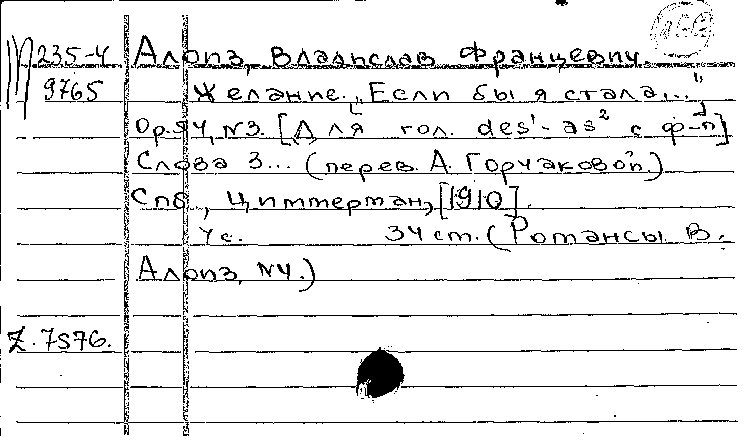 М 235-4 Алоиз, Владислав Францевич.
9765 Желание. „Если бы я стала..."
Op. 94, N3. [Для гол. des¹-as² с ф-п]
Слова З... (перев. А. Горчаковой.)
Спб., Циммерман, [1910].
4 с. 34 cm. (Романсы В.
Алоиз, N4.)
Z. 7576.